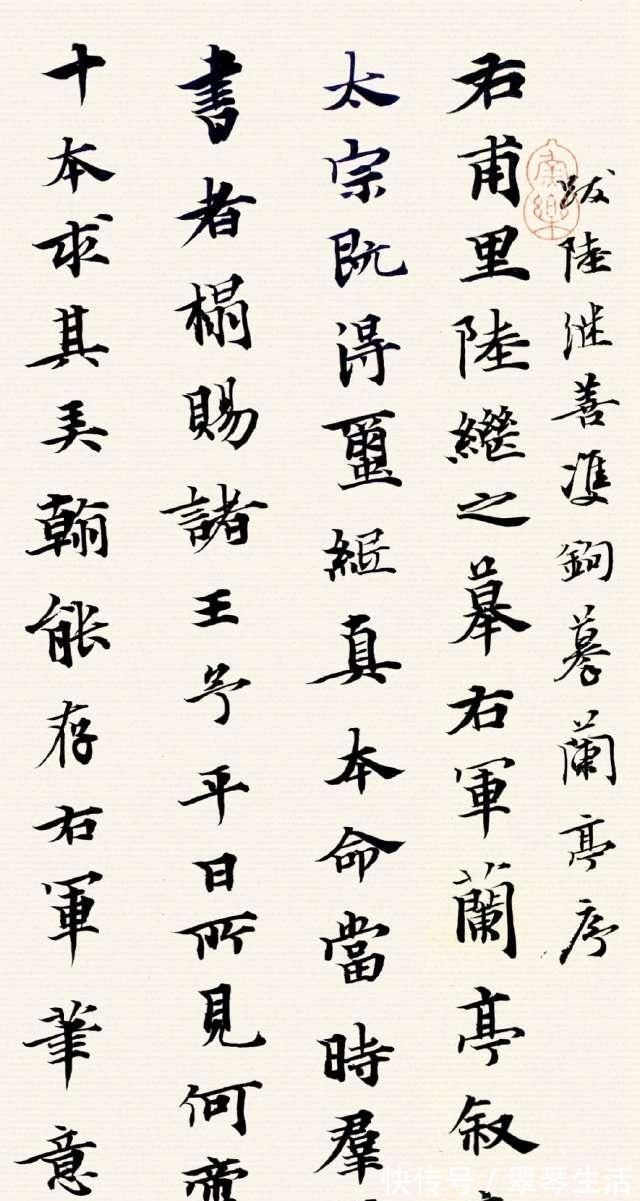 跋陸继善雙鉤摹蘭亭序
右甫里陸繼之摹右軍蘭亭叙
太宗既得繭紙真本命當時羣
書者榻賜諸王予平日所見何啻
十本求其弄翰能存右軍筆意
快传号 / 翠琴生活